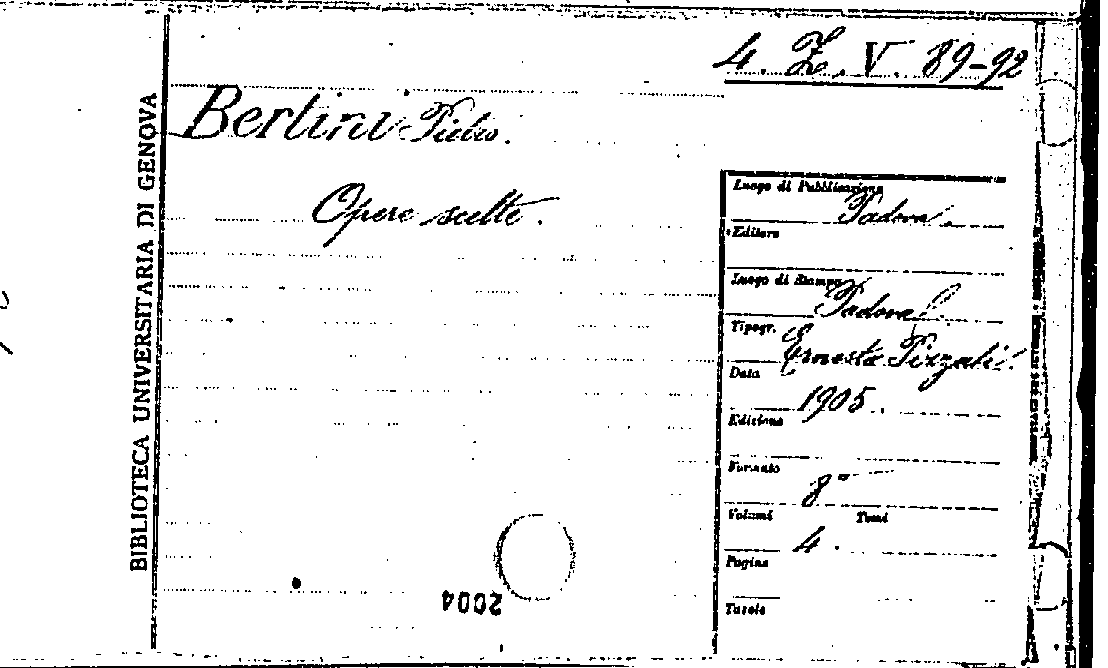 4. Z. V. 89-92
BIBLIOTECA UNIVERSITARIA DI GENOVA
Bertini Pietro.
Opere scelte.
Luogo di Pubblicazione
Padova.
Editore
Luogo di Stampa
Padova
Tipogr.
Ernesto
Data
1905.
Edizione
Formato
8°
Volumi Tomi
4.
Pagine
Tavole
2004